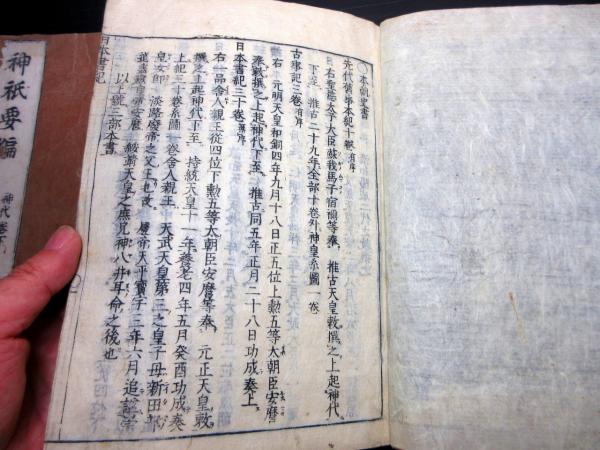 本朝史書
先代舊事本紀十卷有序
右聖德太子大臣蘇我馬子宿禰等奉 推古天皇敕撰之上起神代
下至 推古二十九年全部十卷外神皇系圖一卷
古事記三卷有序
右 元明天皇和銅四年九月十八日正五位上勲五等太朝臣安麿
奉敕撰之上起神代下至 推古同五年正月二十八日功成奏上
日本書記三十卷
右一品舍人親王從四位下勲五等太朝臣安麿等奉 元正天皇敕
撰之上起神代下至 持統天皇十一年養老四年五月癸酉功成奏
上紀三十卷系圖一卷舍人親王 天武天皇第三之皇子母新田部
皇女 淡路廢帝之父王也故 廢帝天平寶字三年六月追
崇 安麿 綏靖天皇之庶兄神八井耳命之後也
以上號三部本書
日本書記
神祇要編
神代卷下